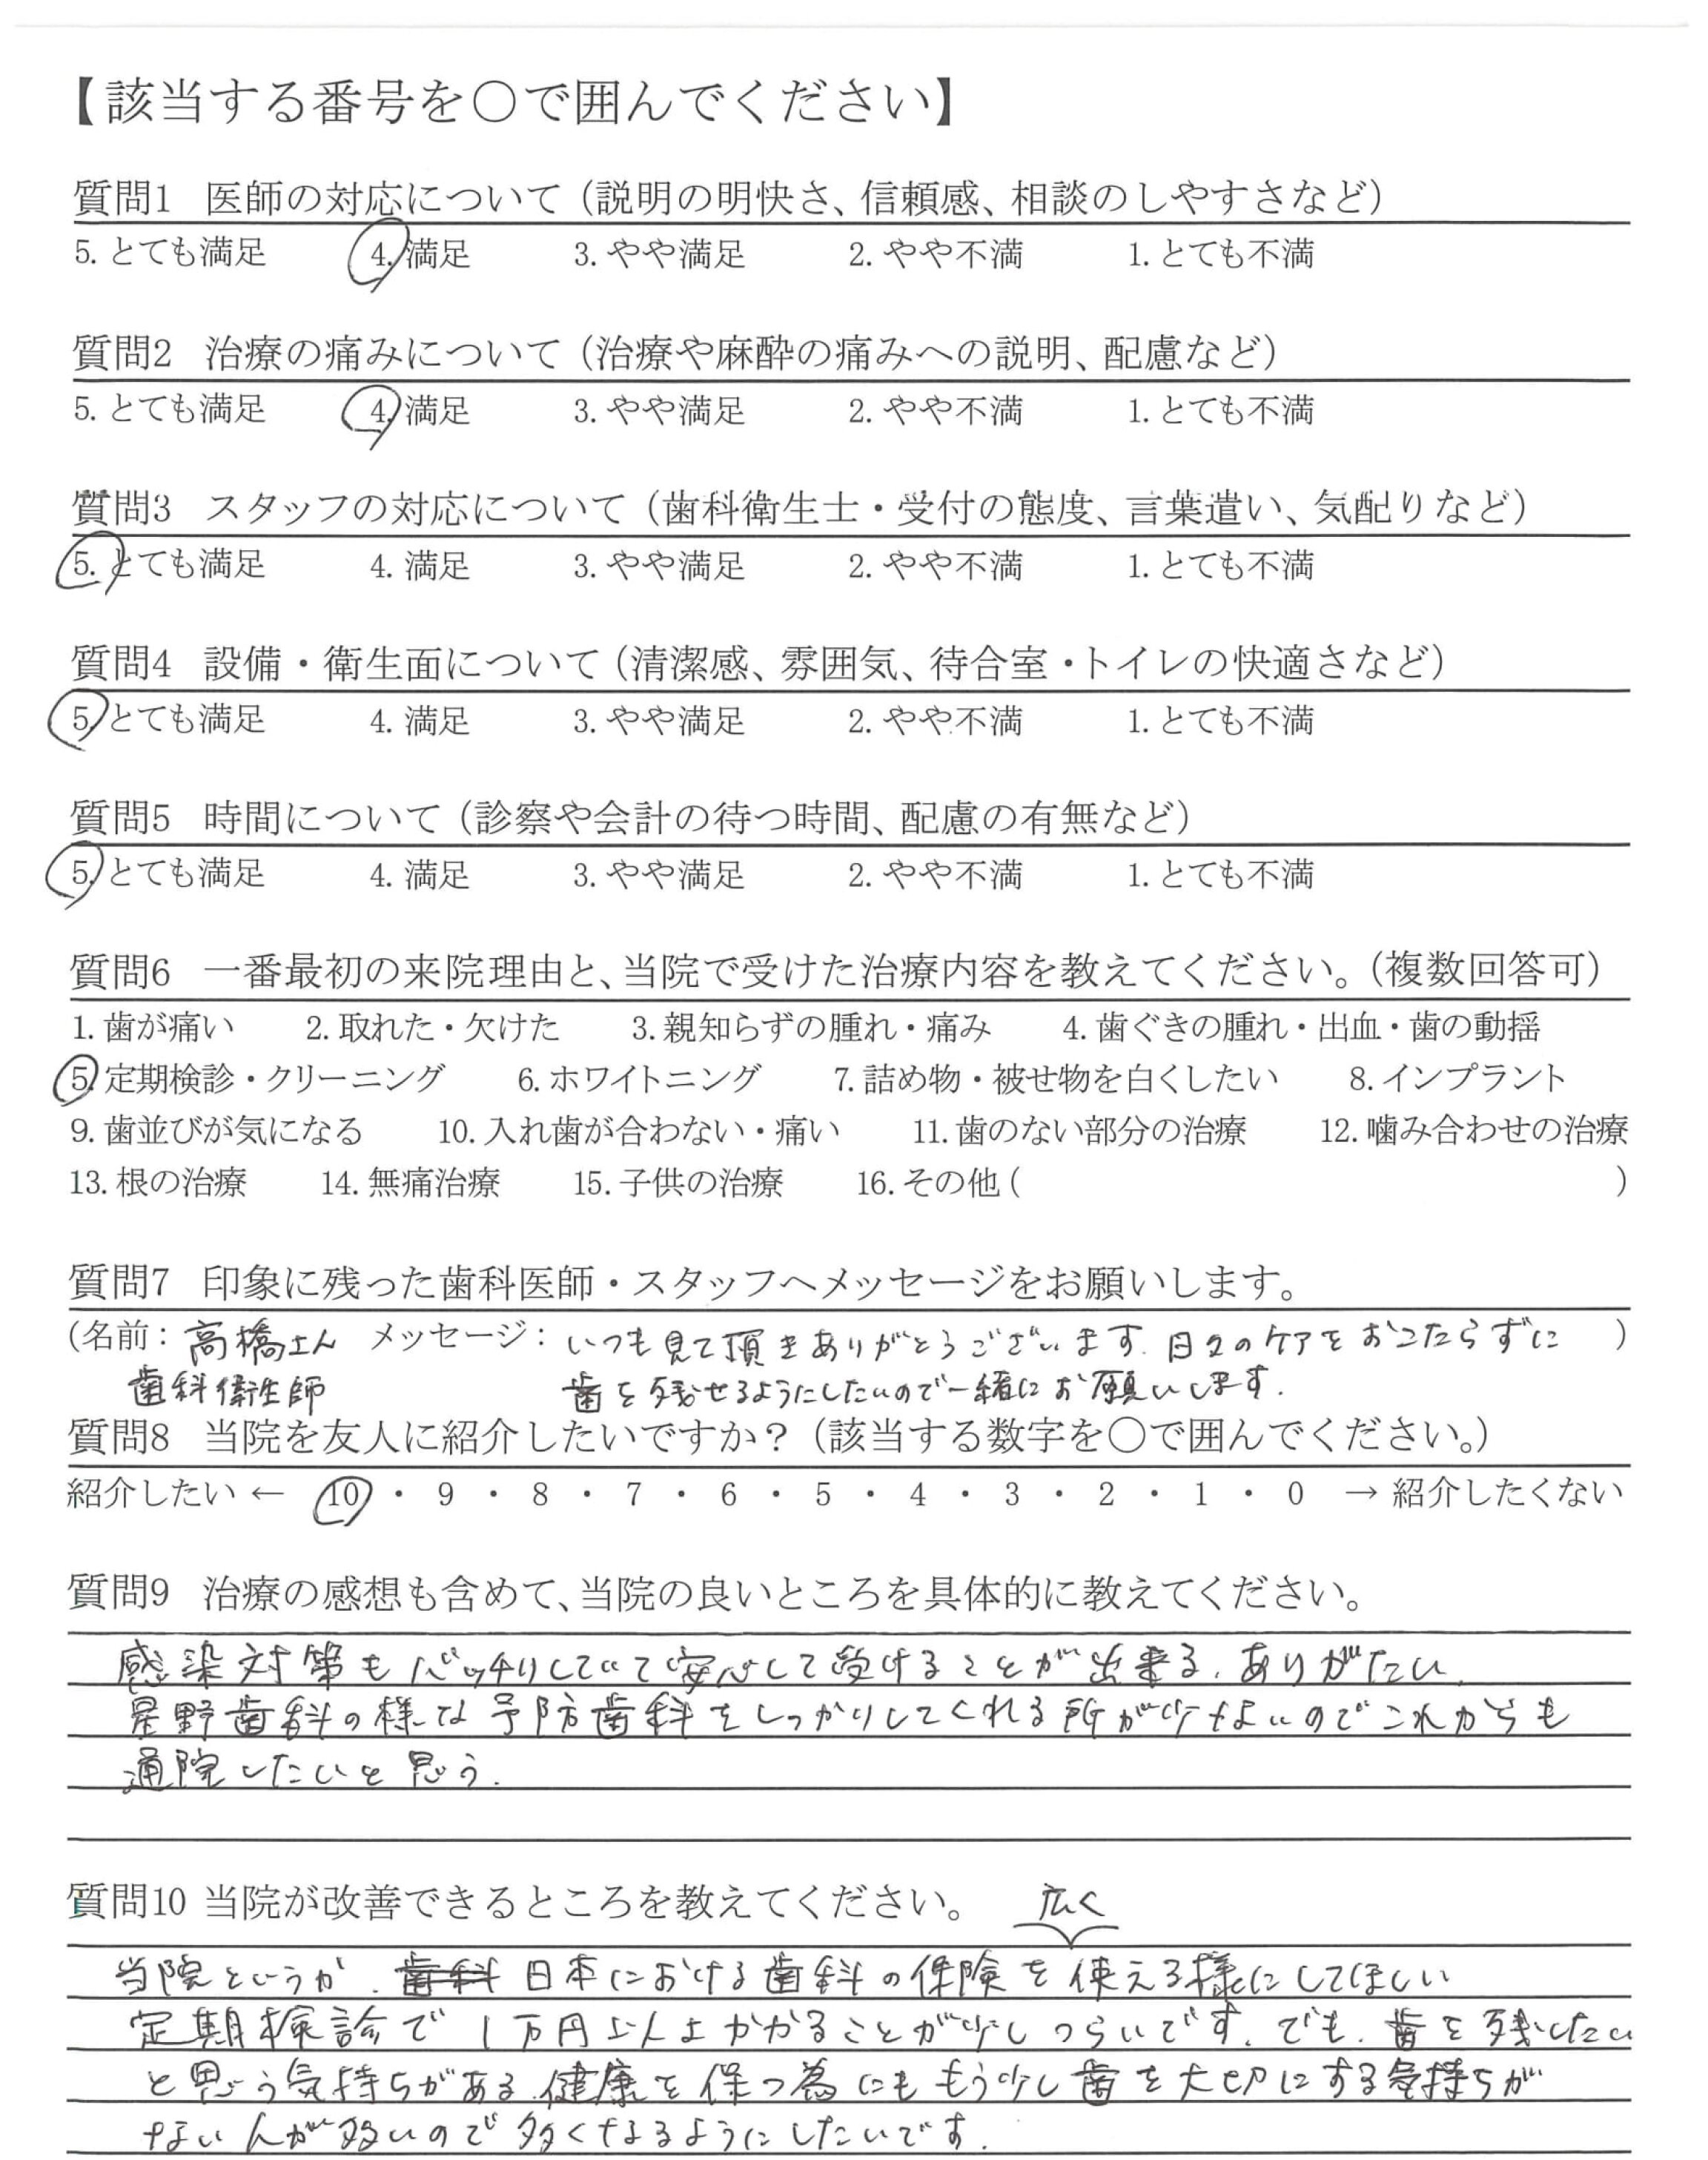 【該当する番号を〇で囲んでください】
質問1 医師の対応について（説明の明快さ、信頼感、相談のしやすさなど）
5. とても満足 4. 満足 3. やや満足 2. やや不満 1. とても不満
質問2 治療の痛みについて（治療や麻酔の痛みへの説明、配慮など）
5. とても満足 4. 満足 3. やや満足 2. やや不満 1. とても不満
質問3 スタッフの対応について（歯科衛生士・受付の態度、言葉遣い、気配りなど）
5. とても満足 4. 満足 3. やや満足 2. やや不満 1. とても不満
質問4 設備・衛生面について（清潔感、雰囲気、待合室・トイレの快適さなど）
5. とても満足 4. 満足 3. やや満足 2. やや不満 1. とても不満
質問5 時間について（診察や会計の待つ時間、配慮の有無など）
5. とても満足 4. 満足 3. やや満足 2. やや不満 1. とても不満
質問6 一番最初の来院理由と、当院で受けた治療内容を教えてください。（複数回答可）
1. 歯が痛い 2. 取れた・欠けた 3. 親知らずの腫れ・痛み 4. 歯ぐきの腫れ・出血・歯の動揺
5. 定期検診・クリーニング 6. ホワイトニング 7. 詰め物・被せ物を白くしたい 8. インプラント
9. 歯並びが気になる 10. 入れ歯が合わない・痛い 11. 歯のない部分の治療 12. 噛み合わせの治療
13. 根の治療 14. 無痛治療 15. 子供の治療 16. その他 ( )
質問7 印象に残った歯科医師・スタッフへメッセージをお願いします。
（名前：高橋さん メッセージ：いつも見て頂きありがとうございます. 日々のケアをおこたらずに ）
歯科衛生師 歯を残せるようにしたいので一緒にお願いします.
質問8 当院を友人に紹介したいですか？（該当する数字を〇で囲んでください。）
紹介したい ← 10 ・ 9 ・ 8 ・ 7 ・ 6 ・ 5 ・ 4 ・ 3 ・ 2 ・ 1 ・ 0 → 紹介したくない
質問9 治療の感想も含めて、当院の良いところを具体的に教えてください。
感染対策もバッチリしていて安心して受けることが出来る. ありがたい.
星野歯科の様な予防歯科をしっかりしてくれる所が少ないのでこれからも
通院したいと思う.
質問10 当院が改善できるところを教えてください。
広く
当院というか. 歯科 日本における歯科の保険を使える様にしてほしい
定期検診で1万円以上かかることが少しつらいです. でも. 歯を残したい
と思う気持ちがある. 健康を保つ為にももう少し歯を大切にする気持ちが
ない人が多いので多くなるようにしたいです.